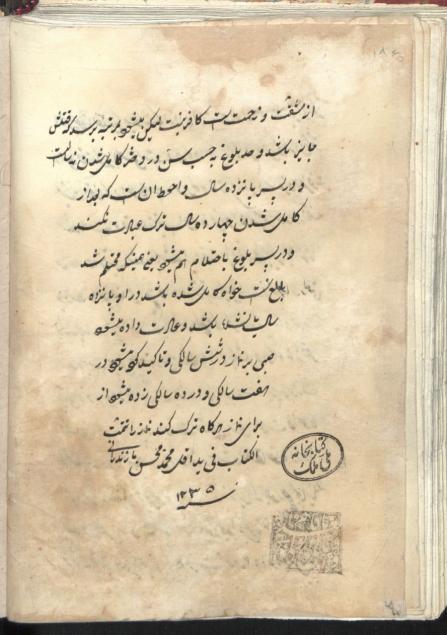 از مشقت و زحمتست کافر نیست لیکن میشود بمرتبه برسد که قتلش
جایز باشد و حد بلوغ به حسب سن در دختر کامل شدن نه سالست
و در پسر پانزده سال و احوط آن است که بعد از
کامل شدن چهارده سال ترک عبادت نکند
و در پسر بلوغ باحتلام هم میشود یعنی همینکه محتلم شد
بالغ است خواه کامل شده باشد در او پانزده
سال یا نشده باشد و عادت داده میشود
صبی بر نماز در شش سالگی و تاکید کرده میشود در
هفت سالگی و در ده سالگی زده میشود از
برای نماز هرگاه ترک کند نماز را تمت
الکتاب فی ید اقل محمد محسن مازندرانی
سنه ۱۲۳۵
کتابخانه
ملی ملک